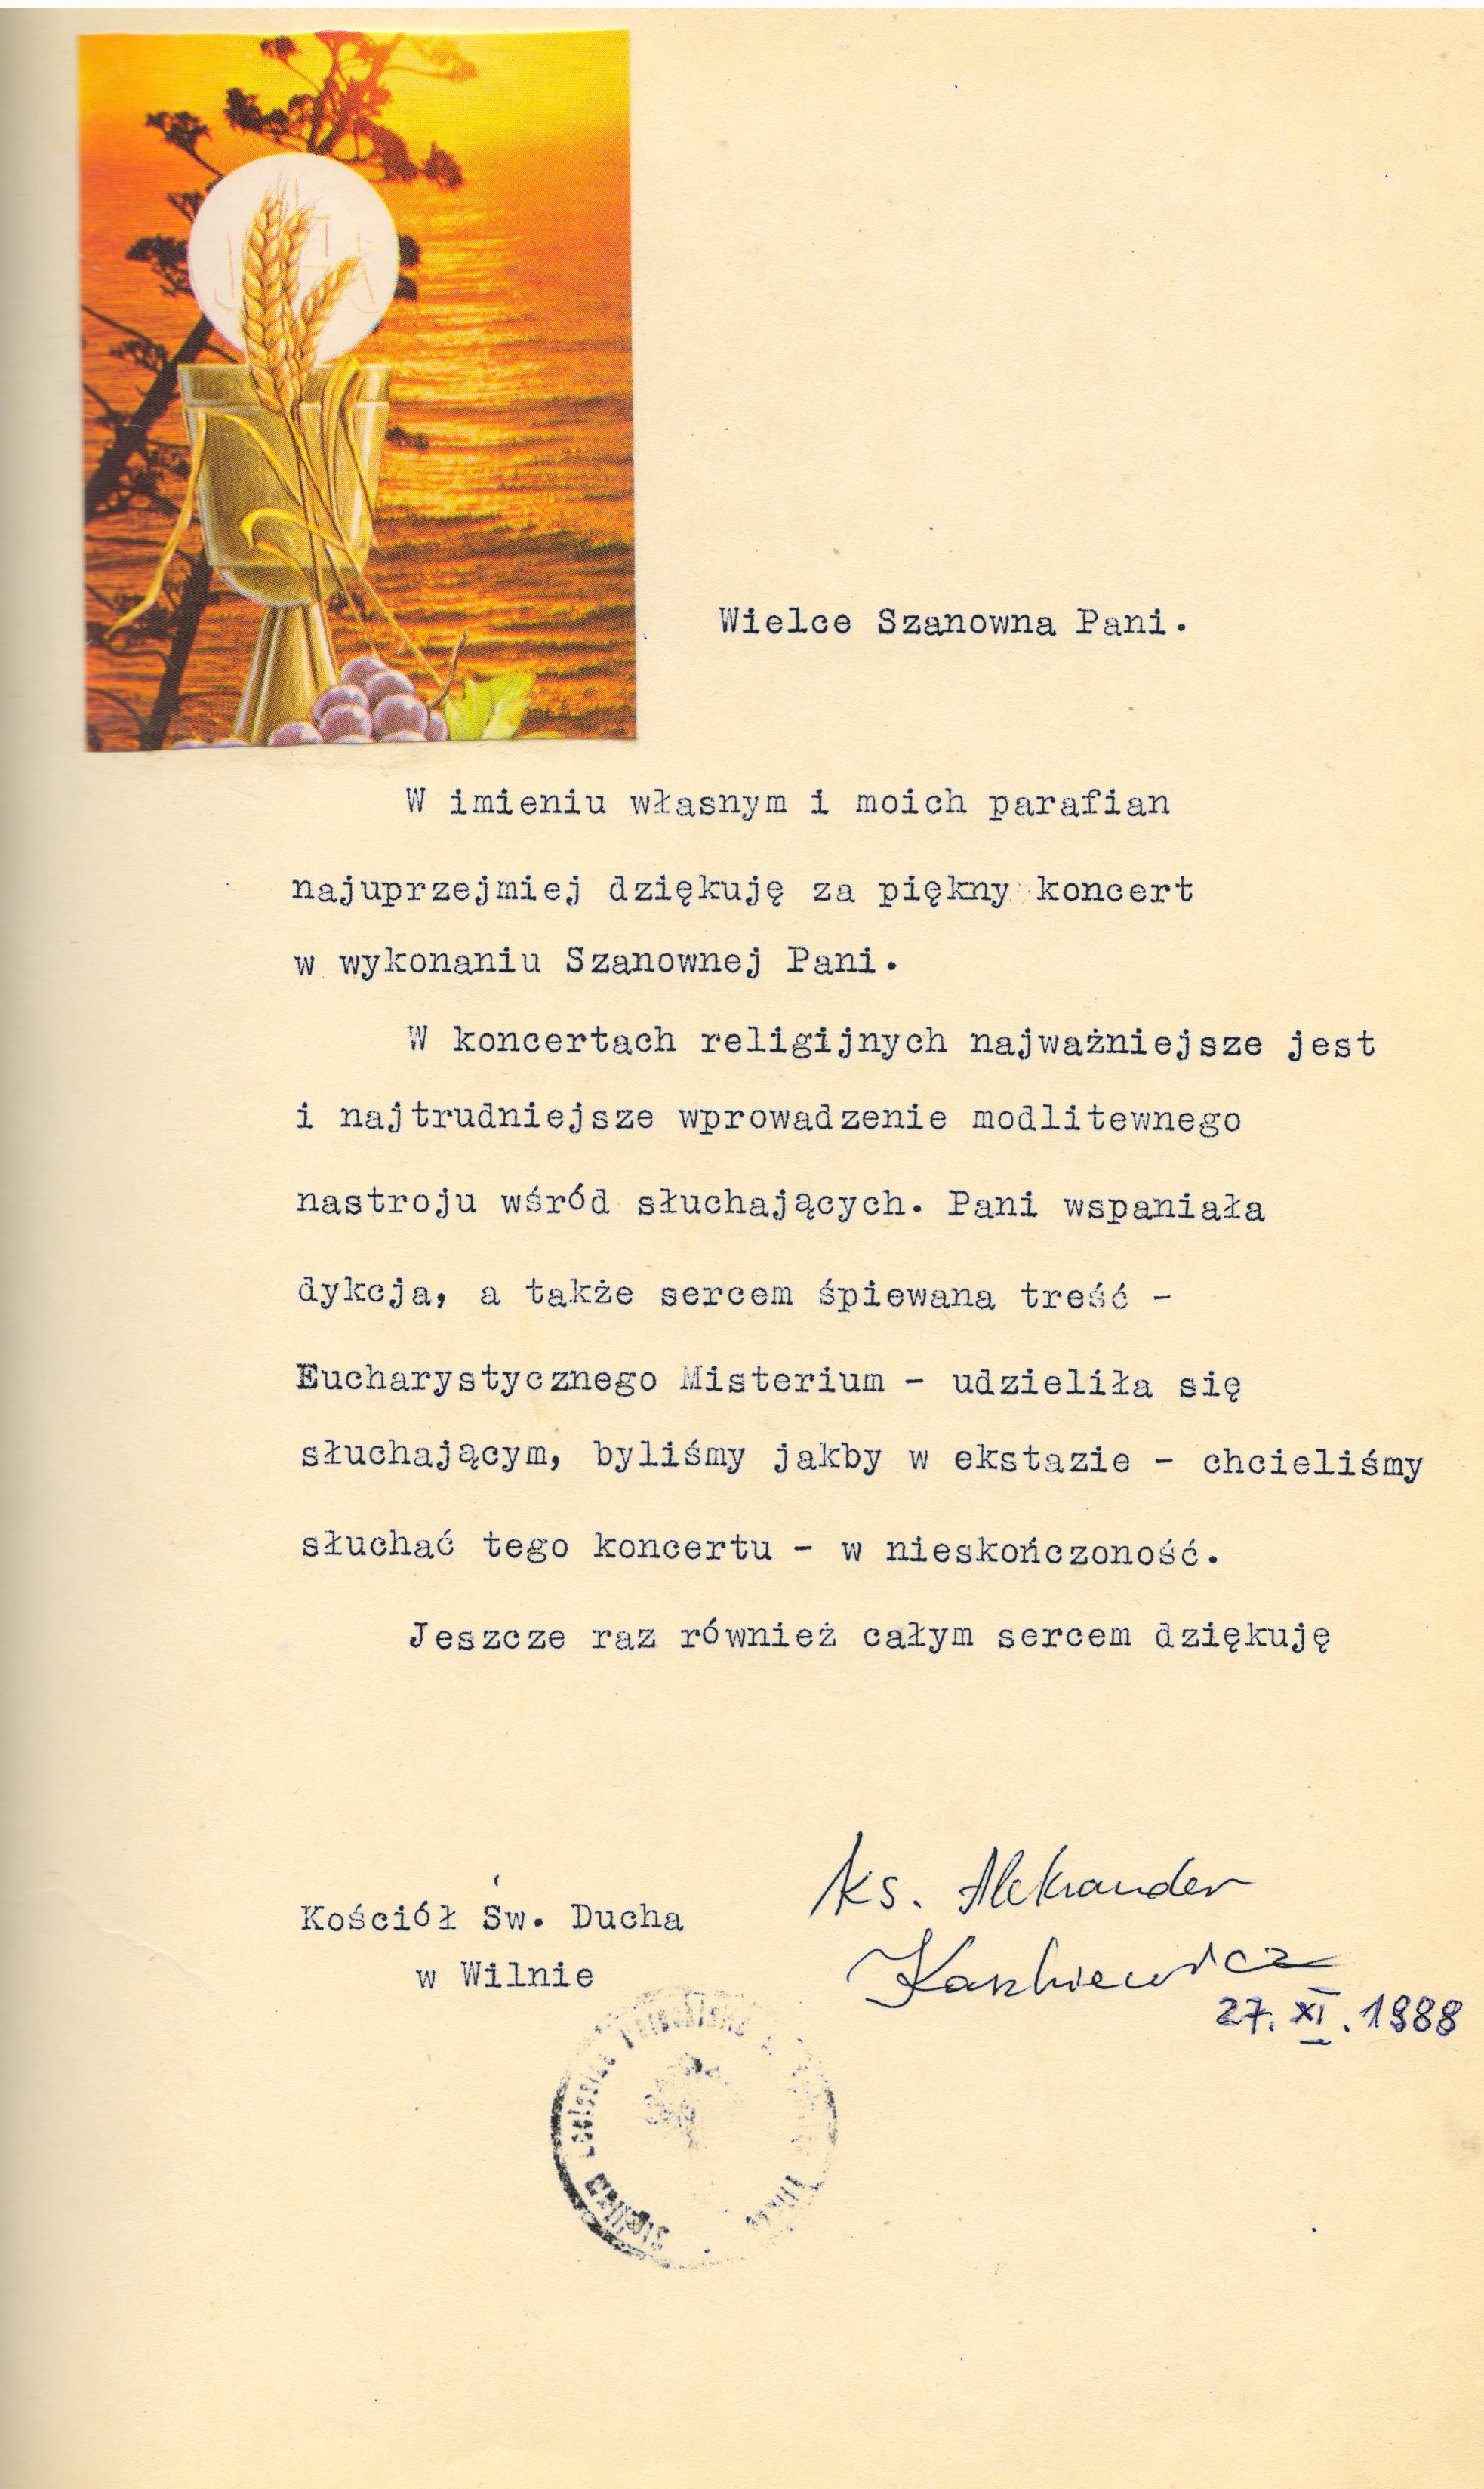 Wielce Szanowna Pani.
W imieniu własnym i moich parafian
najuprzejmiej dziękuję za piękny koncert
w wykonaniu Szanownej Pani.
W koncertach religijnych najważniejsze jest
i najtrudniejsze wprowadzenie modlitewnego
nastroju wśród słuchających. Pani wspaniała
dykcja, a także sercem śpiewana treść -
Eucharystycznego Misterium - udzieliła się
słuchającym, byliśmy jakby w ekstazie - chcieliśmy
słuchać tego koncertu - w nieskończoność.
Jeszcze raz również całym sercem dziękuję
Kościół Św. Ducha
w Wilnie
ks. Aleksander
Kaszkiewicz
27. XI. 1988